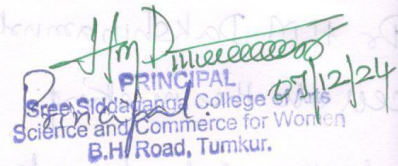 PRINCIPAL
Principal. 07/12/24
Sree Siddaganga College of Arts
Science and Commerce for Women
B.H. Road, Tumkur.